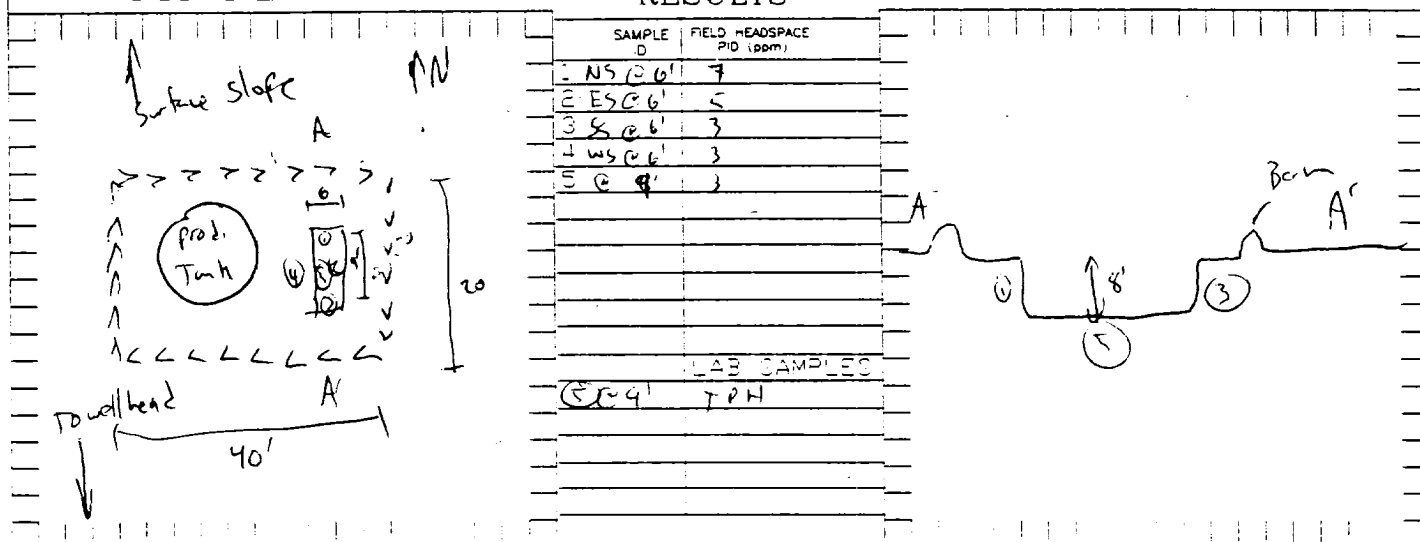 RESULTS
Surface slope
N
A
6
prod.
Tank
①
④
⑤
20
A'
To wellhead
40'
SAMPLE FIELD HEADSPACE
ID PID (ppm)
1 NS @ 6' 7
2 ES @ 6' 5
3 SS @ 6' 3
4 WS @ 6' 3
5 @ 9' 3
LAB SAMPLES
⑤ @ 9' TPH
A
Berm
A'
①
8'
③
⑤